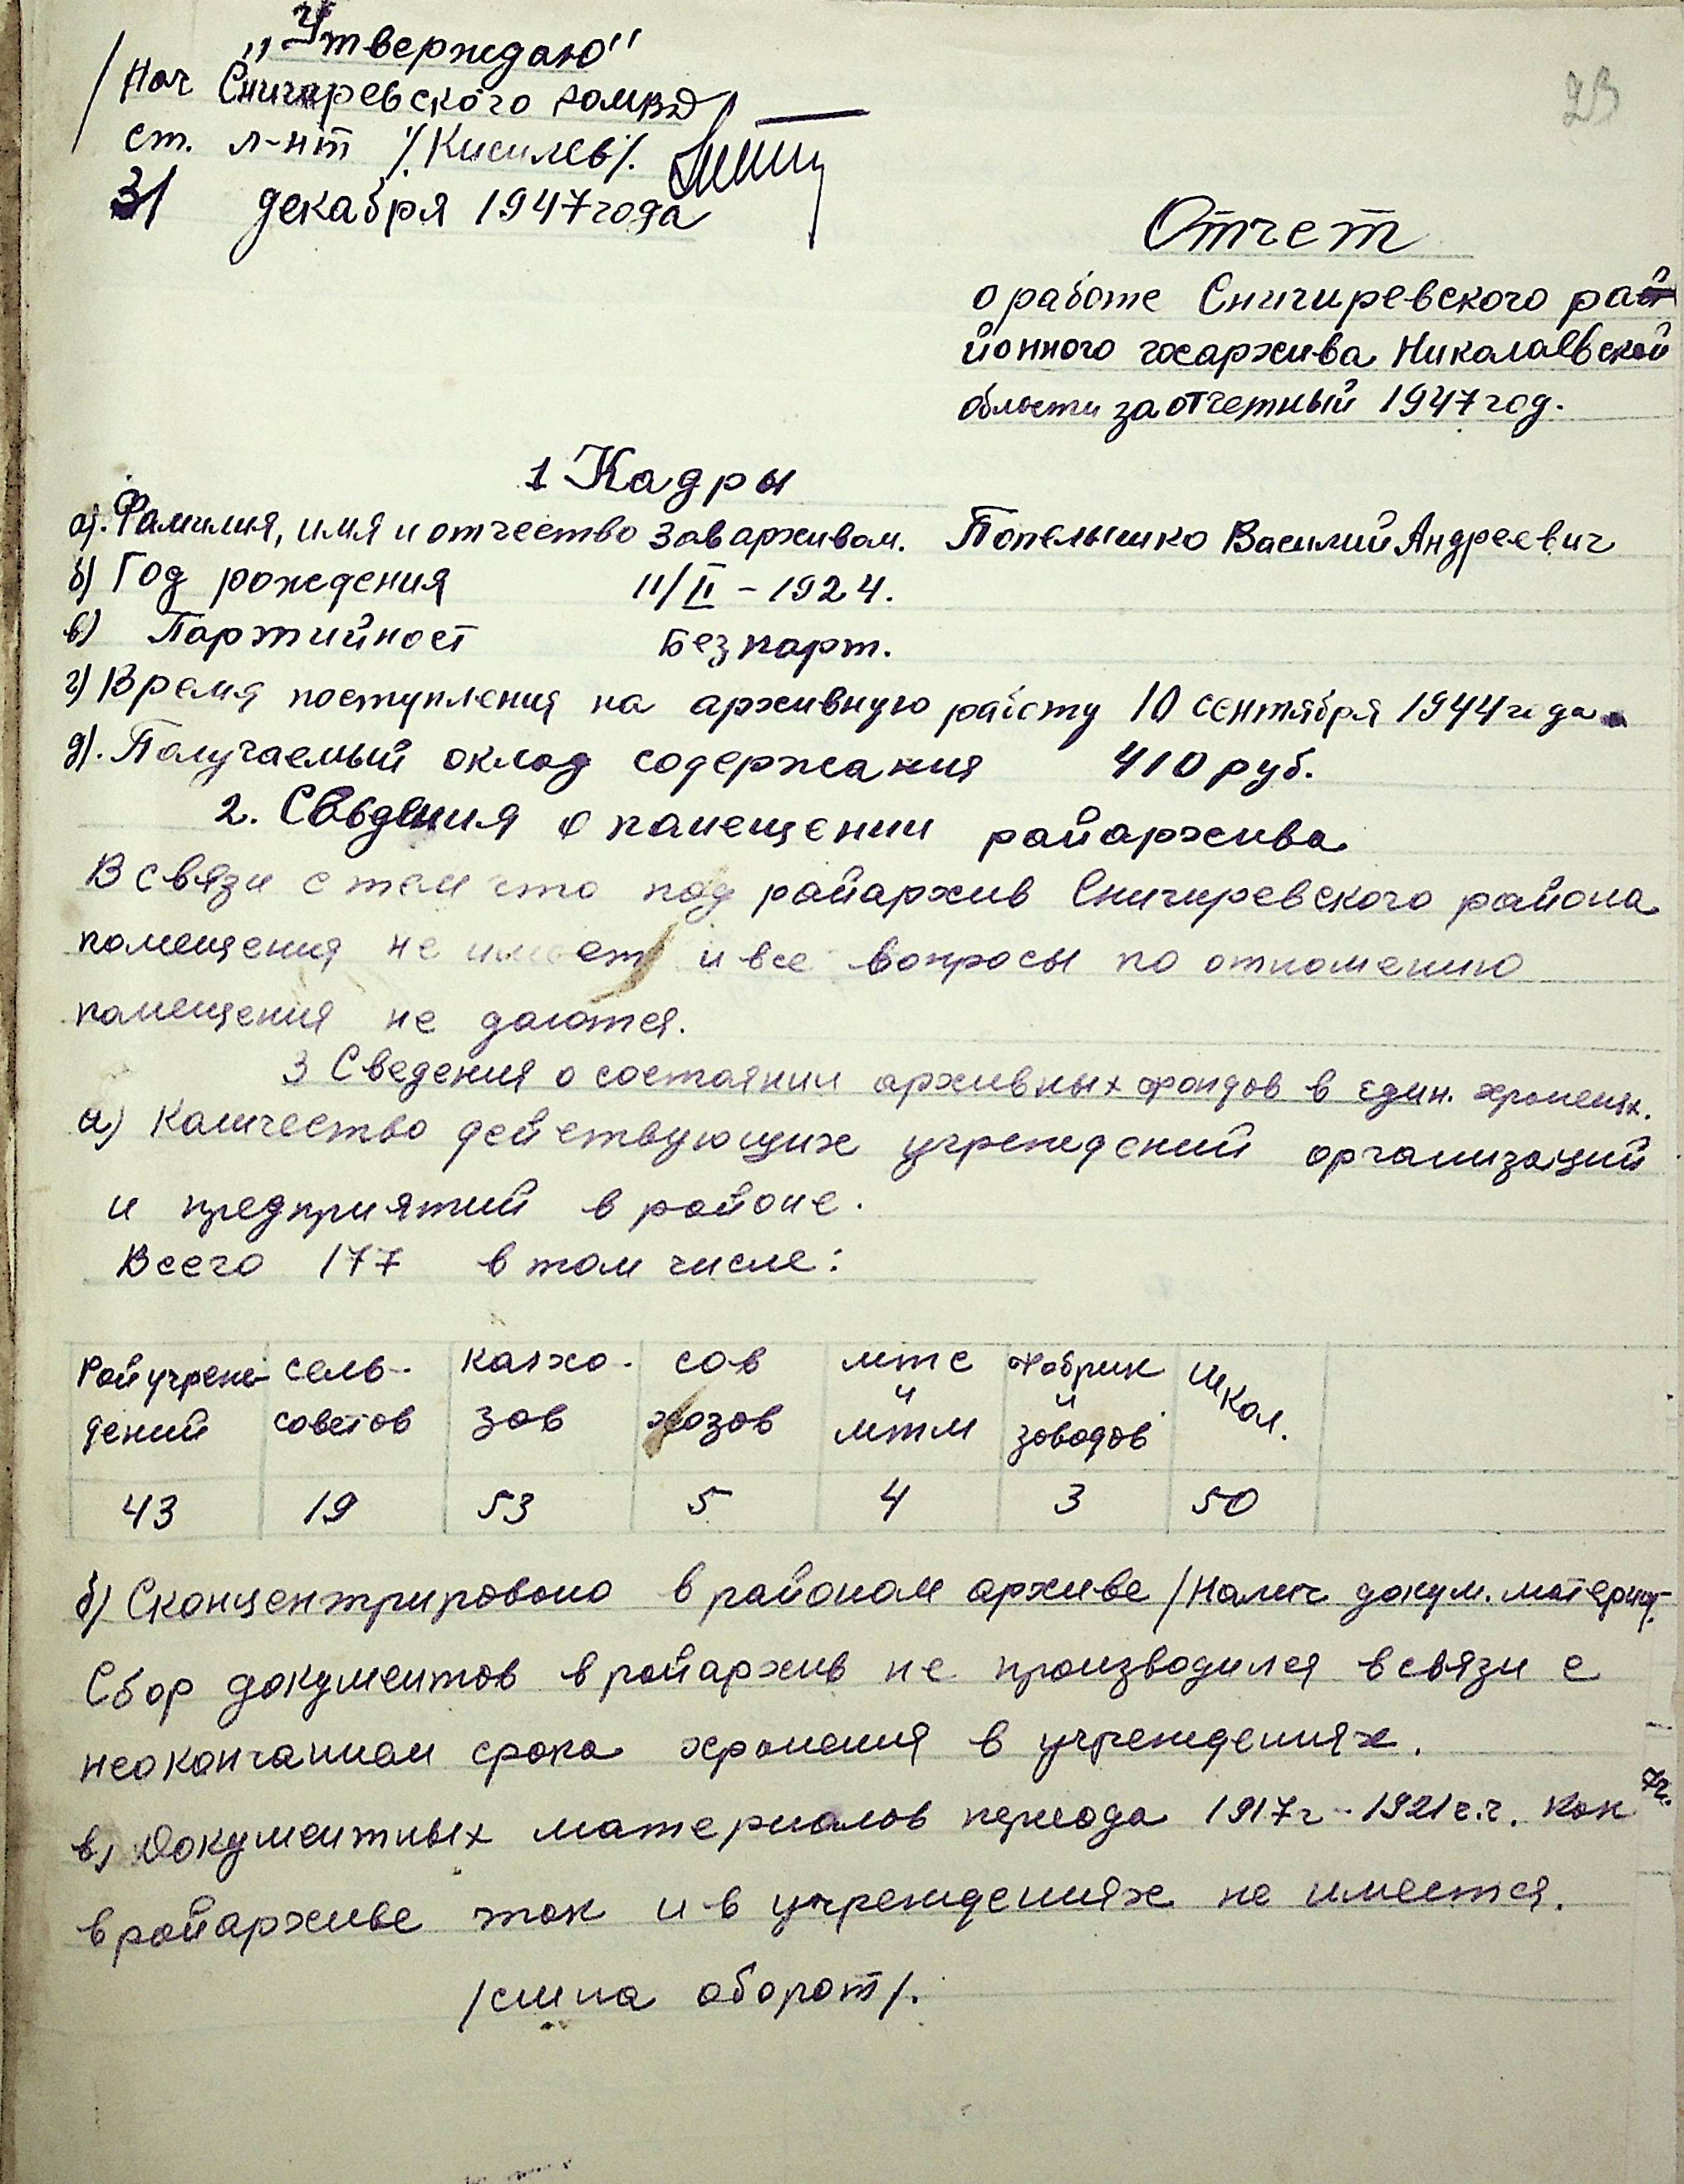 „Утверждаю"
/Нач Снигиревского РОМВД
ст. л-нт /Кисилев/.
31 декабря 1947 года
23
Отчет
о работе Снигиревского рай
йонного госархива Николаевской
области за отчетный 1947 год.
1 Кадры
а). Фамилия, имя и отчество Зав архивом. Попелышко Василий Андреевич
б) Год рождения 11/II – 1924.
в) Партийност Безпарт.
г) Время поступления на архивную работу 10 сентября 1944 года
д). Получаемый оклад содержания 410 руб.
2. Сведения о помещении райархива
В связи с тем что под райархив Снигиревского района
помещения не имеет и все вопросы по отношению
помещения не даются.
3 Сведения о состоянии архивных фондов в един. хранения.
а) Количество действующих учреждений организаций
и предприятий в районе.
Всего 177 в том числе:
Райучреж- сель- колхо- сов мтс фабрик школ.
дений советов зов хозов и мтм и заводов
43 19 53 5 4 3 50
б) Сконцентрировано в районом архиве /Налич докум. материал
Сбор документов в райархив не производился в связи с
неокончанием срока хранения в учреждениях.
в) Документных материалов периода 1917г - 1921 г.г. как
в райархиве так и в учреждениях не имеется.
/см на оборот/.